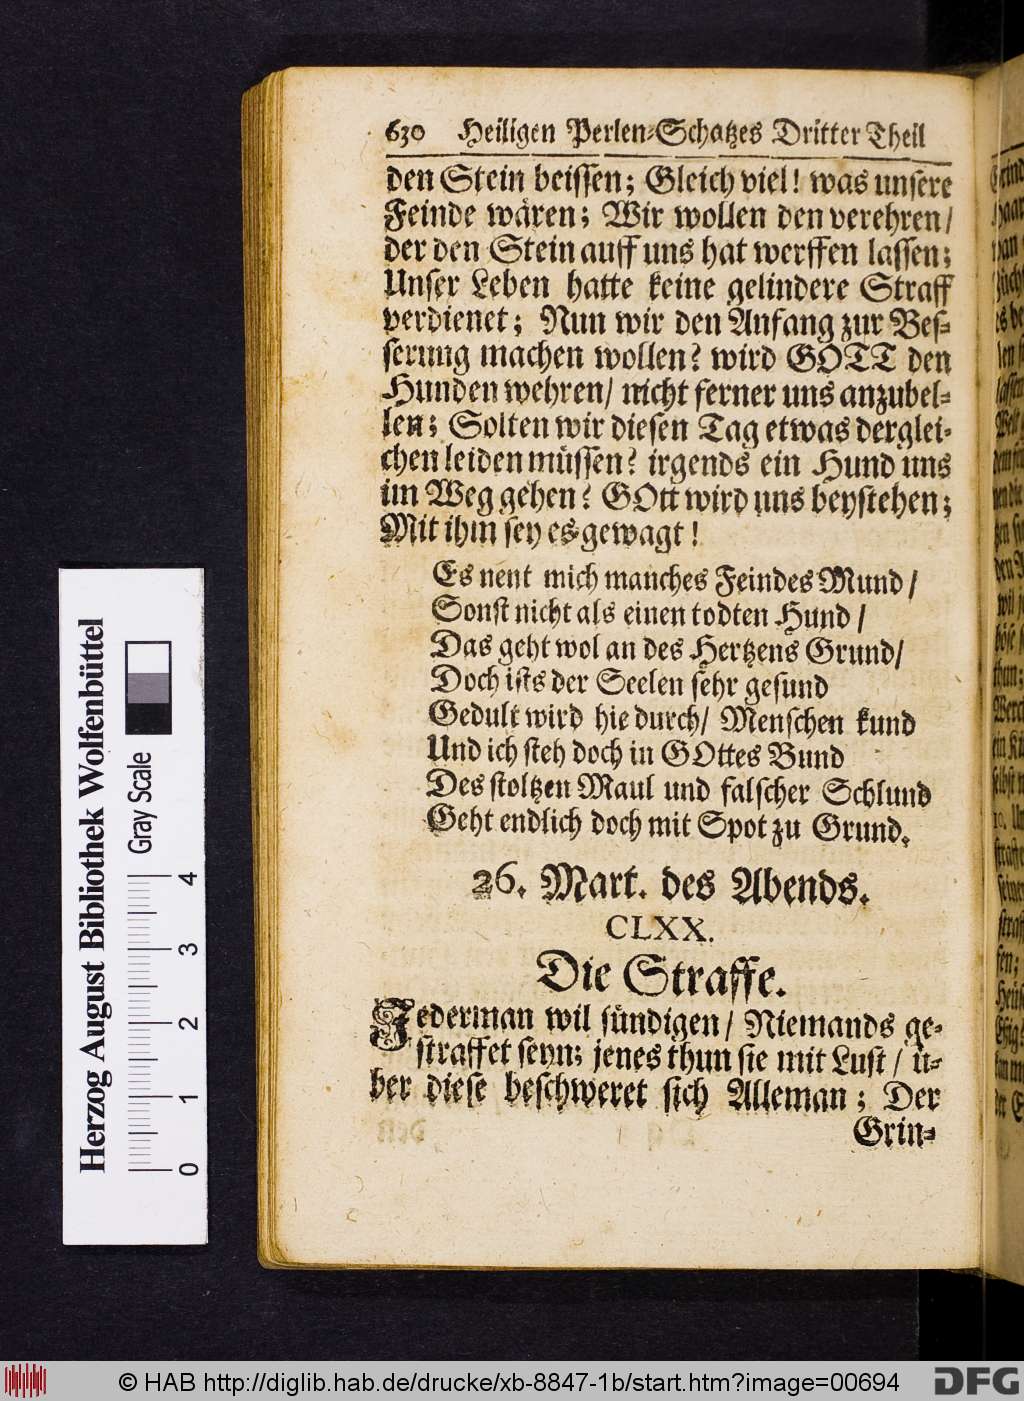 630 Heiligen Perlen-Schatzes Dritter Theil
den Stein beissen; Gleich viel! was unsere
Feinde wären; Wir wollen den verehren/
der den Stein auff uns hat werffen lassen;
Unser Leben hatte keine gelindere Straff
verdienet; Nun wir den Anfang zur Bes-
serung machen wollen? wird GOTT den
Hunden wehren/ nicht ferner uns anzubel-
len; Solten wir diesen Tag etwas derglei-
chen leiden müssen? irgends ein Hund uns
im Weg gehen? GOtt wird uns beystehen;
Mit ihm sey es gewagt!
Es nent mich manches Feindes Mund/
Sonst nicht als einen todten Hund/
Das geht wol an des Hertzens Grund/
Doch ists der Seelen sehr gesund
Gedult wird hie durch/ Menschen kund
Und ich steh doch in GOttes Bund
Des stoltzen Maul und falscher Schlund
Geht endlich doch mit Spot zu Grund.
26. Mart. des Abends.
CLXX.
Die Straffe.
Jederman wil sündigen/ Niemands ge-
straffet seyn; jenes thun sie mit Lust/ ü-
ber diese beschweret sich Alleman; Der
Grin-
Herzog August Bibliothek Wolfenbüttel
Gray Scale
0 1 2 3 4
© HAB http://diglib.hab.de/drucke/xb-8847-1b/start.htm?image=00694
DFG